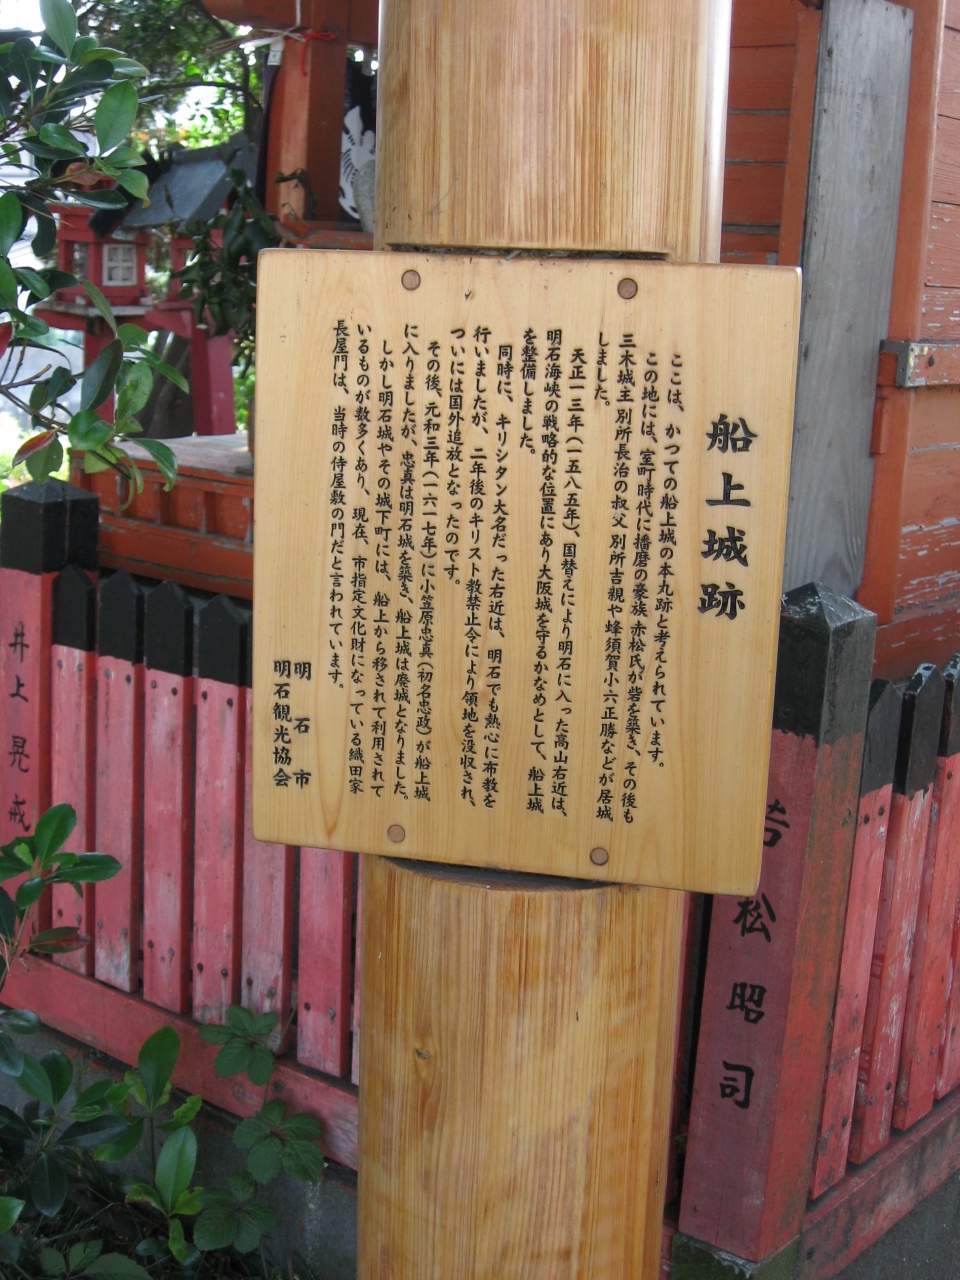 船上城跡
ここは、かつての船上城の本丸跡と考えられています。
この地には、室町時代に播磨の豪族 赤松氏が砦を築き、その後も
三木城主 別所長治の叔父 別所吉親や蜂須賀小六正勝などが居城
しました。
天正一三年(一五八五年)、国替えにより明石に入った高山右近は、
明石海峡の戦略的な位置にあり大阪城を守るかなめとして、船上城
を整備しました。
同時に、キリシタン大名だった右近は、明石でも熱心に布教を
行いましたが、二年後のキリスト教禁止令により領地を没収され、
ついには国外追放となったのです。
その後、元和三年(一六一七年)に小笠原忠真(初名忠政)が船上城
に入りましたが、忠真は明石城を築き、船上城は廃城となりました。
しかし明石城やその城下町には、船上から移されて利用されて
いるものが数多くあり、現在、市指定文化財になっている織田家
長屋門は、当時の侍屋敷の門だと言われています。
明石市
明石観光協会
松昭司
井上晃戒